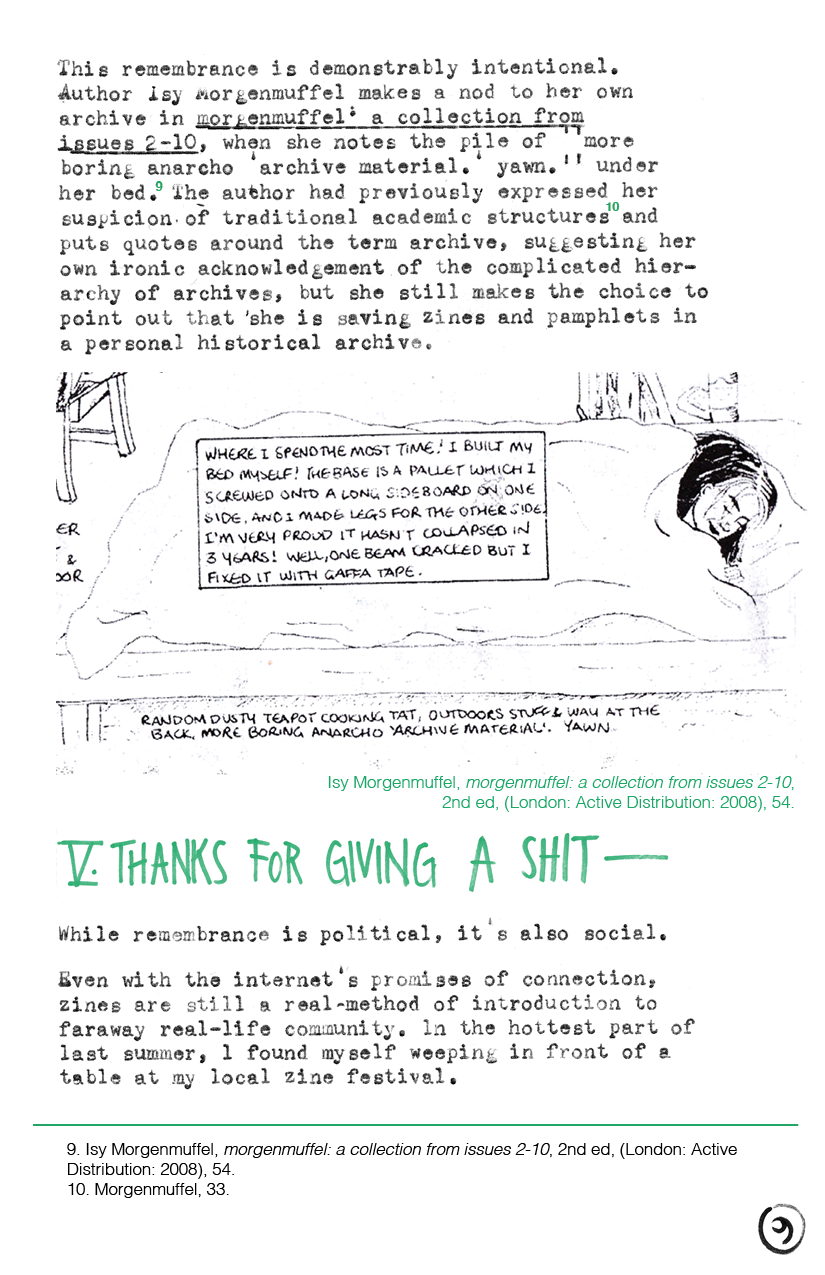 This remembrance is demonstrably intentional.
Author Isy Morgenmuffel makes a nod to her own
archive in morgenmuffel: a collection from
issues 2-10, when she notes the pile of "more
boring anarcho 'archive material.' yawn." under
her bed.9 The author had previously expressed her
suspicion of traditional academic structures10 and
puts quotes around the term archive, suggesting her
own ironic acknowledgement of the complicated hier-
archy of archives, but she still makes the choice to
point out that she is saving zines and pamphlets in
a personal historical archive.
WHERE I SPEND THE MOST TIME! I BUILT MY
BED MYSELF! THE BASE IS A PALLET WHICH I
SCREWED ONTO A LONG SIDEBOARD ON ONE
SIDE, AND I MADE LEGS FOR THE OTHER SIDE.
I'M VERY PROUD IT HASN'T COLLAPSED IN
3 YEARS! WELL, ONE BEAM CRACKED BUT I
FIXED IT WITH GAFFA TAPE.
ER
&
OOR
RANDOM DUSTY TEAPOT COOKING TAT, OUTDOORS STUFF & WAY AT THE
BACK, MORE BORING ANARCHO 'ARCHIVE MATERIAL'. YAWN
Isy Morgenmuffel, morgenmuffel: a collection from issues 2-10,
2nd ed, (London: Active Distribution: 2008), 54.
V. THANKS FOR GIVING A SHIT—
While remembrance is political, it's also social.
Even with the internet's promises of connection,
zines are still a real-method of introduction to
faraway real-life community. In the hottest part of
last summer, I found myself weeping in front of a
table at my local zine festival.
9. Isy Morgenmuffel, morgenmuffel: a collection from issues 2-10, 2nd ed, (London: Active
Distribution: 2008), 54.
10. Morgenmuffel, 33.
9